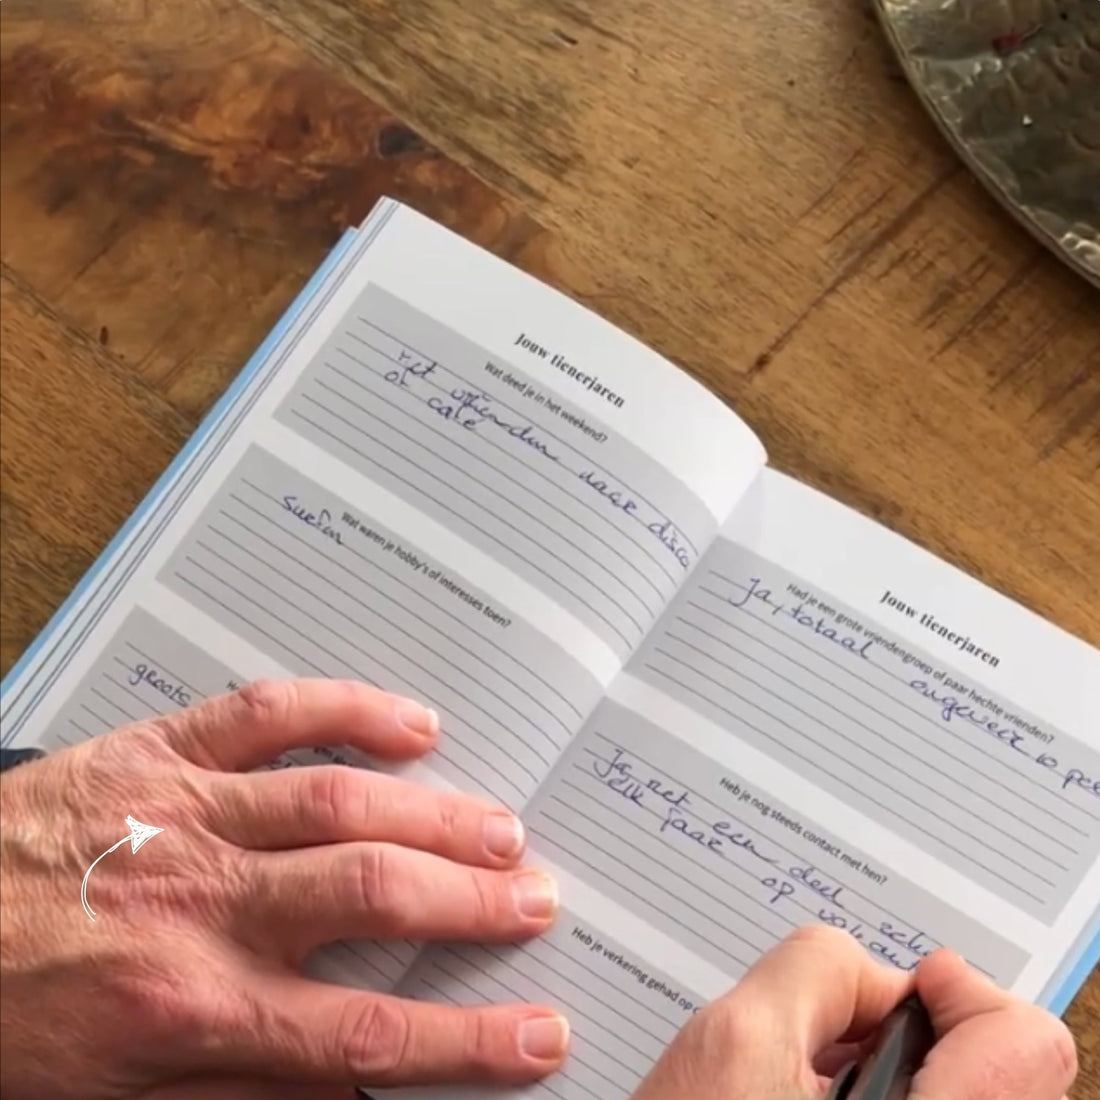 Jouw tienerjaren
Wat deed je in het weekend?
met vrienden naar disco
of café
Wat waren je hobby's of interesses toen?
surfen
groots
Jouw tienerjaren
Had je een grote vriendengroep of paar hechte vrienden?
Ja, totaal ongeveer 10
Heb je nog steeds contact met hen?
Ja, met een deel
elk jaar op vakant
Heb je verkering gehad op